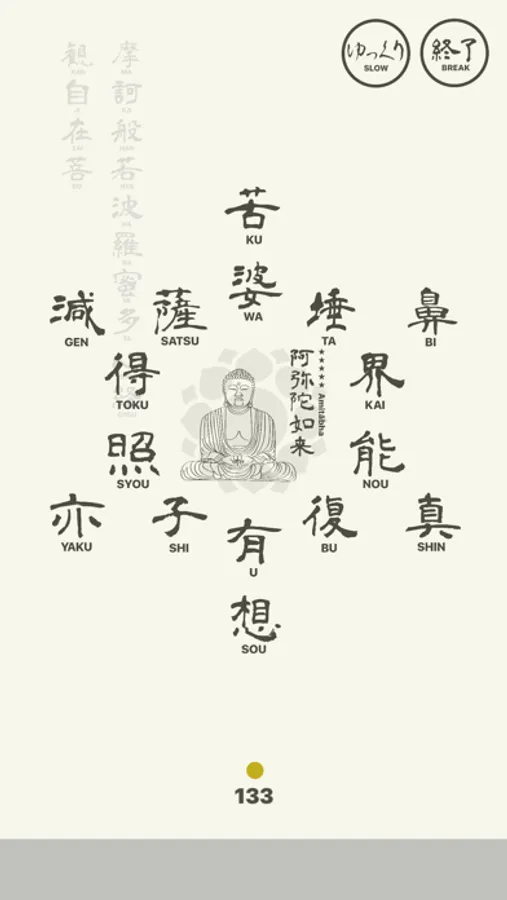 ゆっくり
SLOW
終了
BREAK
摩訶般若波羅蜜多
観自在菩
苦
KU
婆
WA
減
GEN
薩
SATSU
埵
TA
鼻
BI
得
TOKU
界
KAI
阿弥陀如来
★★★★★ Amitābha
照
SYOU
能
NOU
亦
YAKU
子
SHI
有
U
復
BU
真
SHIN
想
SOU
133